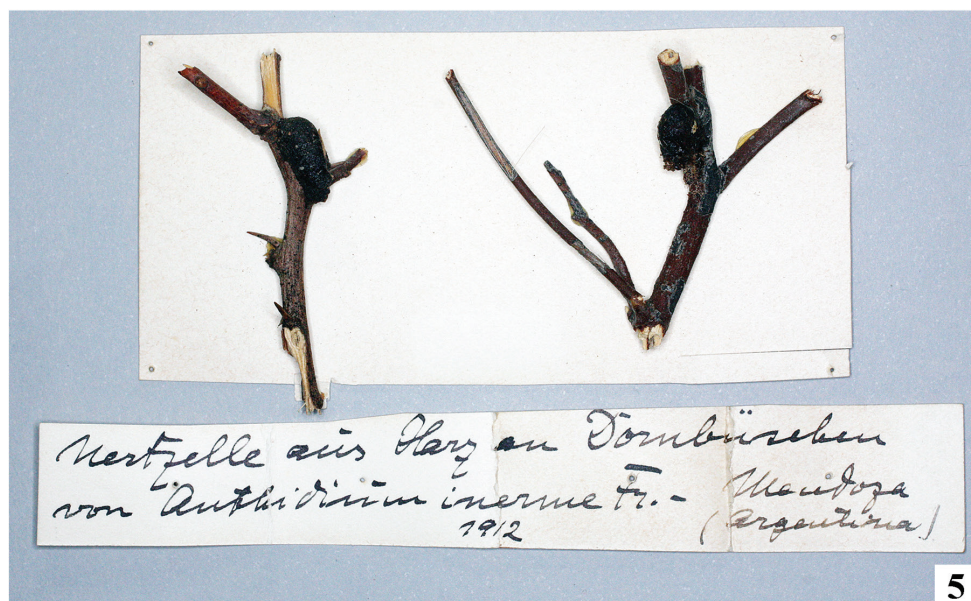 Nestzelle aus Harz an Dornbüschen
von Anthidium inerme Fr.- Mendoza
1912 (Argentina)
5